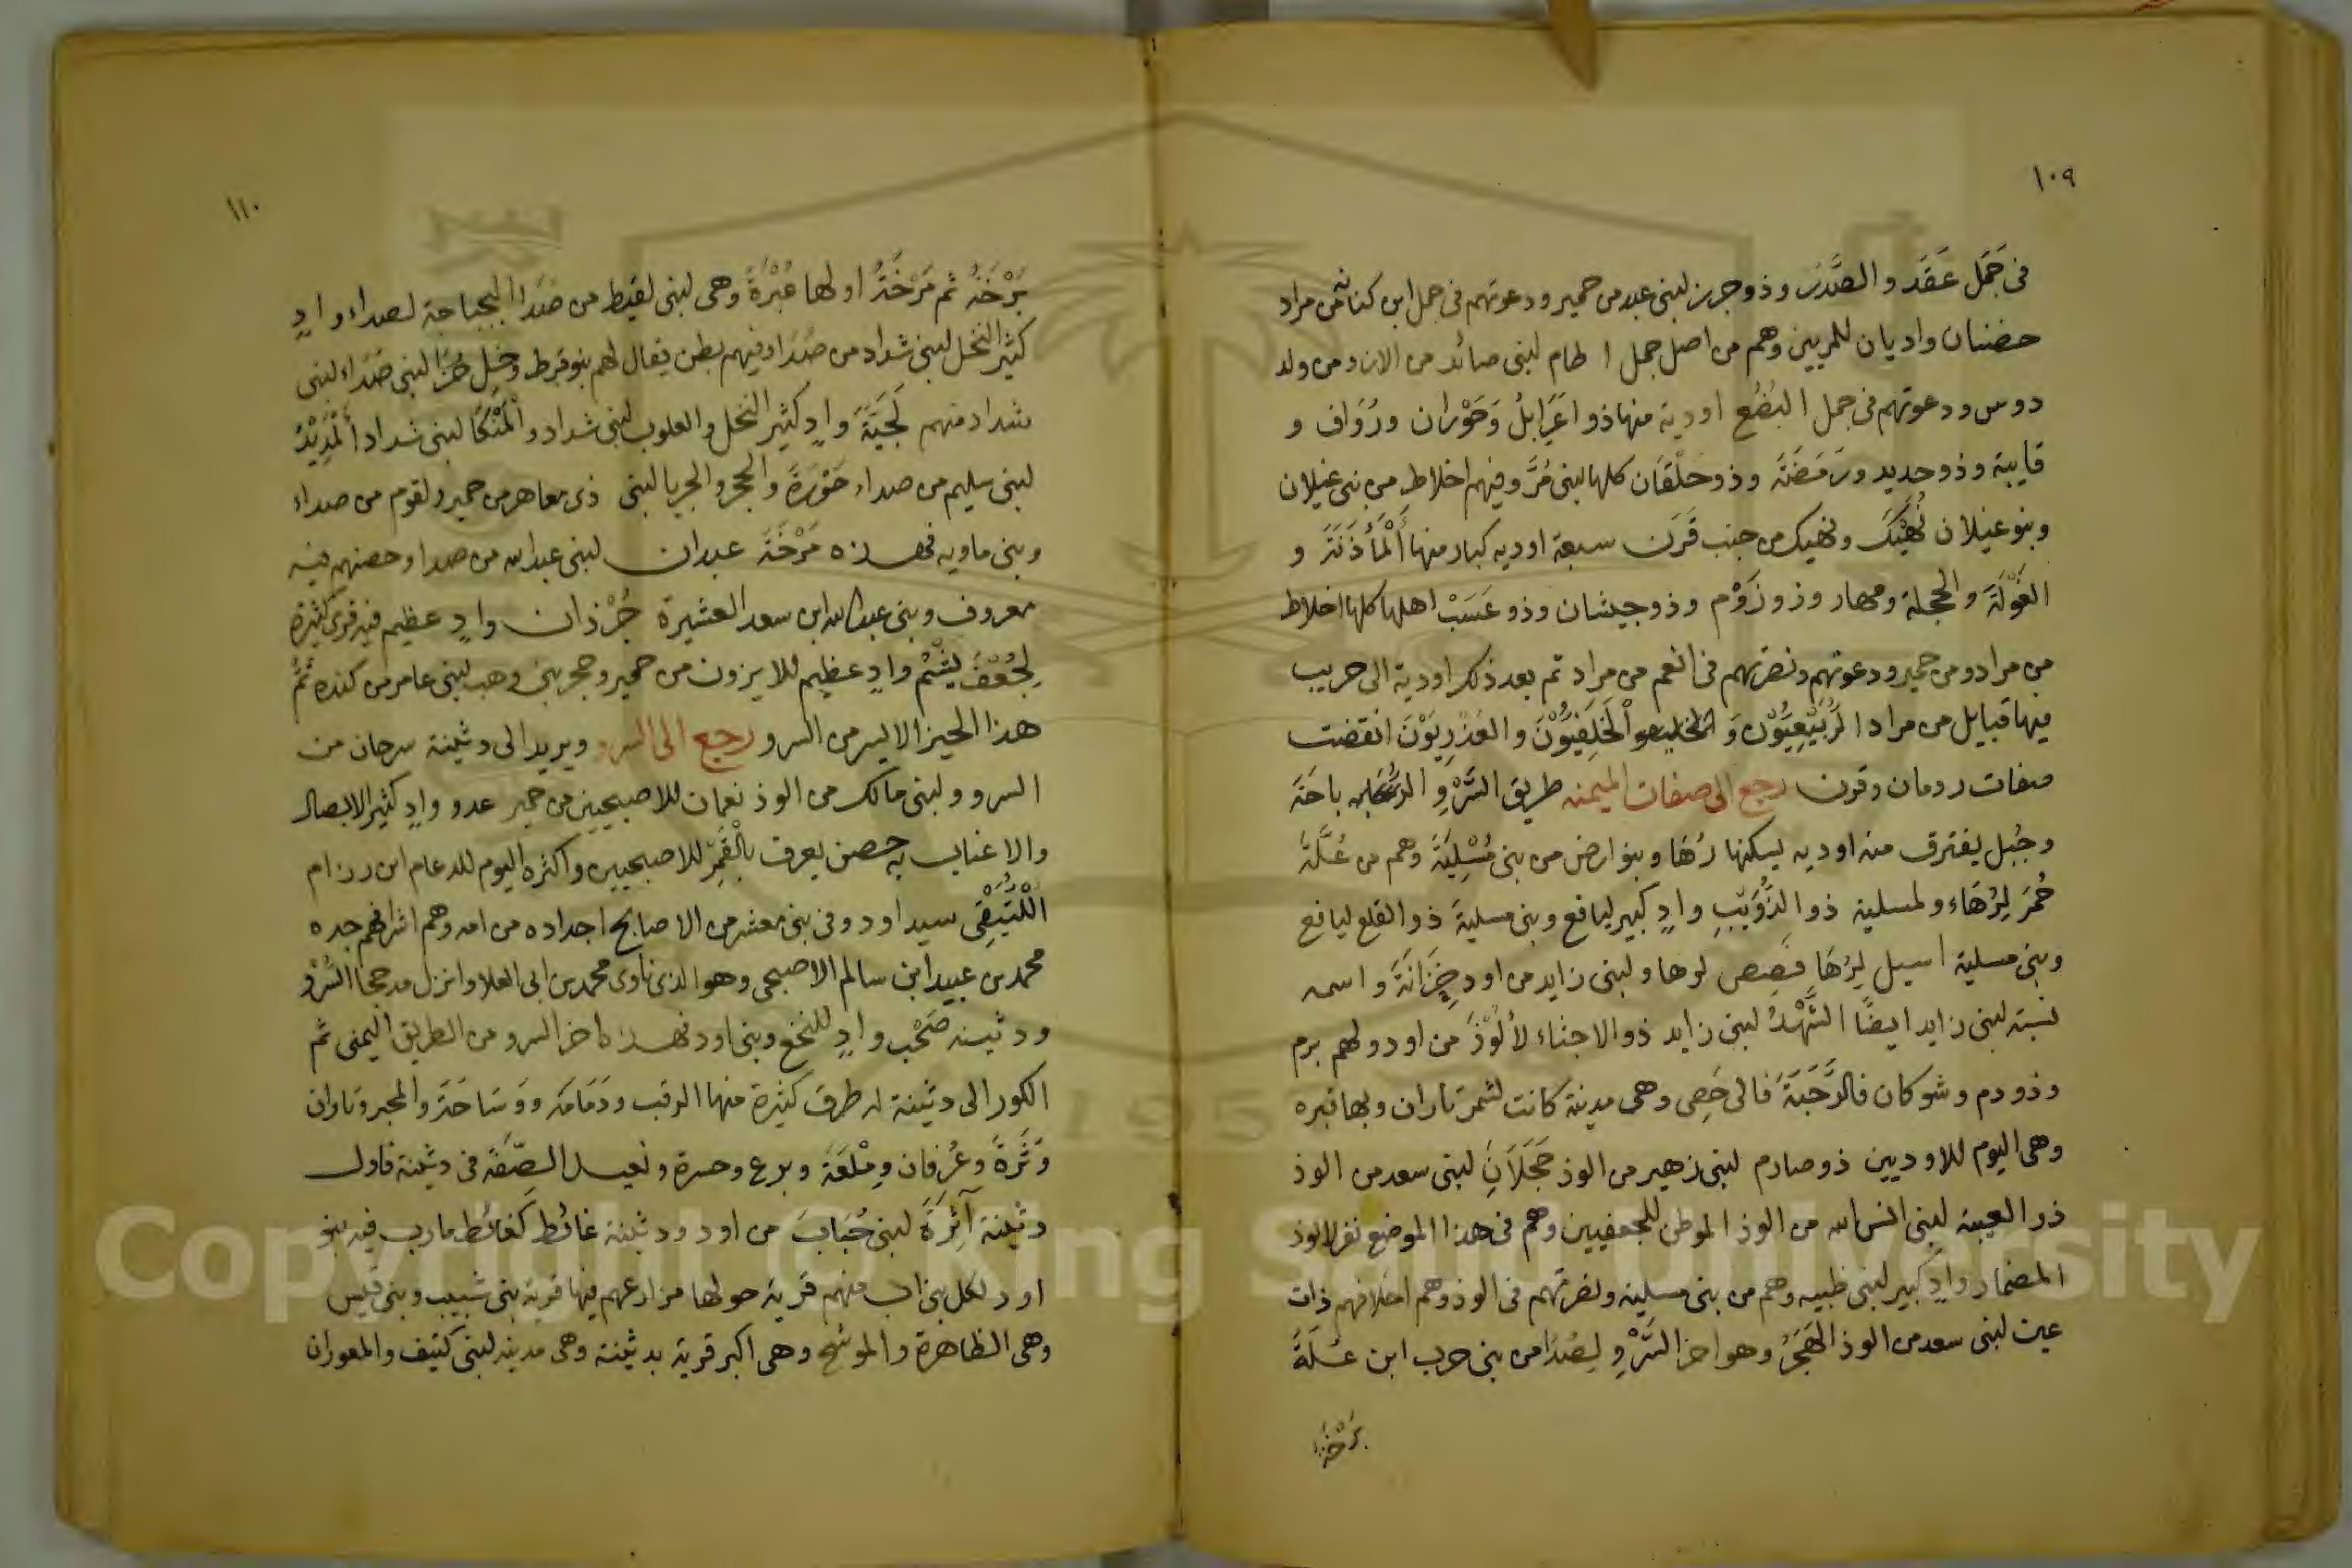 ١٠٩
فى جَمَل عَقَد والصَّدَر وذو جرب لبنى عبد من حمير ودعوتهم فى جمل ابن كنانة من مراد
حضنان واديان للمريين وهم من اصل جمل اطام لبنى صائد من الازد ومن ولد
دوس ودعوتهم فى جمل البُضُع اودية منها ذو اعَرَابلُ وَحَوْران ورُوَاف و
قايبة وذو حديد ورَمَضَة وذو حلْقَان كلها لبنى مُرَّ وفيهم اخلاط من بنى غيلان
وبنو غيلان نُهَيْكَ ونهيك من جنب قَرَن سبعة اوديه كبار منها اَلْمَأذَنَة و
الغَوْلَة والحجلة ومهار وذو زَوْم وذو جيشان وذو عَسَبْ اهلها كلها اخلاط
من مراد ومن حمير ودعوتهم ونصرتهم فى انعم من مراد ثم بعد ذلك اودية الى حريب
فيها قبايل من مراد الرُبَيْعِيُّوْن وَ الْخَلِفيُّوْنَ والعُذْرِيَوْنَ انقضت
صفات ردمان وقرن رجع الى صفات الميمنه طريق السَّرْوِ باحَة
وجُبل يفترق منه اوديه يسكنها رُهَا وبنو ارض من بنى مُسْلِيَة وهم من عُلَة
حُمَر لِرُهَاء ولمسلية ذو الذُّوَيْبِ وادٍ كبير ليافع وبنى مسلية ذو القلع ليافع
وبنى مسلية اسيل لِرُهَا قَصِص لرها ولبنى زايد من اود خِزَانَة واسمه
نسبته لبنى زايد ايضًا الشَّهْدُ لبنى زايد ذو الاجثاء لألُوْذَ من اود ولهم برم
وذو ودم وشوكان فالرَّحَبَة فالى خَصِى وهى مدينة كانت لشمر تاران وبها قبره
وهى اليوم للاوديين ذو صارم لبنى زهير من الوذ حَجَلَانِ لبنى سعد من الوذ
ذو العيبة لبنى انس الله من الوذ الموطن للجعفيين وهم فى هذا الموضع نفر لالوذ
المضمار وادٍ كبير لبنى ظبيه وهم من بنى مسلية ونصرتهم فى الوذ وهم احلافهم ذات
عين لبنى سعد من الوذ الهَجَرُ وهو اخر السَّرْوِ لِصُدَا من بنى حرب ابن عُلَة
بَرْخَة

١١٠
بَرْخَة ثم مَرْخَةُ اولها عُبْرَةُ وهى لبنى لقيط من صُدَا البجباجة لصداء وادٍ
كثير النخل لبنى شداد من صُدَا وفيهم بطن يقال لهم بنو قرط لبنى صُدَاء لبنى
شداد منهم لَجِيَّةُ وادٍ كثير النخل والعلوب لبنى شداد والْمَنْكَا لبنى شداد اَلْمَدِيْدُ
لبنى سليم من صداء حَوْرَةُ والحجر والجربا لبنى ذى معاهر من حمير ولقوم من صداء
وبنى ماويه فهذه مَرْخَة عبدان لبنى عبد الله من صدا وحصنهم فيه
معروف وبنى عبد الله ابن سعد العشيرة جُرْذان وادٍ عظيم فيه قرى كثيرة
لِجُعْف يَشْبُم وادٍ عظيم للايزون من حمير وحجر بنى وهب لبنى عامر من كنده تَمَّ
هذا الحيز الايسر من السرو رجع الى السرو ويريد الى دثينة سرحان من
السرو ولبنى مالك من الوذ نعمان للاصبحيين من حمير عدو وادٍ كثير الابصال
والاعناب به حصن يعرف بالْقَمَر للاصبحيين واكثره اليوم للدعام ابن رزام
الْكُتَيْفِى سيد اود وفى بنى معشر من الاصابح اجداده من امه وهم اشرافهم جده
محمد بن عبيد ابن سالم الاصبحى وهو الذى ناوى محمد بن ابى العلا وانزل مذحجا السَّرْو
ودثينه صَحْب وادٍ للنخع وبنى اود فهذا اخر السرو من الطريق اليمنى ثم
الكور الى دثينة له طرق كثيرة منها الرقب ودَمَامَة ووَسَاحَة والمجر وتاران
وَثَرَة وعُرفان ومْلعَة وبرع وحسرة ونعيد الصِّفَة فى دثينة فاول
دثينة آثِرَةَ لبنى حُبَابَ من اود ودثينة غائط كغائط مارب فيه بنو
اود لكل بنى اب منهم قرية حولها مزارعهم فيها قرية بنى شبيب وبنى قيس
وهى الظاهرة والموشح وهى اكبر قرية بدثينة وهى مدينه لبنى كتيف والمعوران